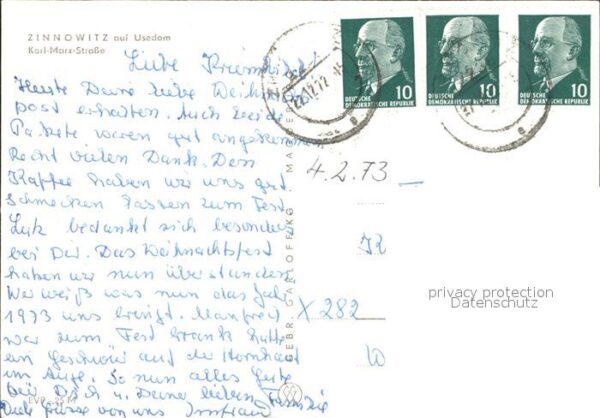 ZINNOWITZ auf Usedom
Karl-Marx-Straße
Liebe
Heute Deine liebe Weihnachts
post erhalten. Auch beide
Pakete waren gut angekommen
Recht vielen Dank. Den
Kaffee haben wir uns gut
schmecken lassen zum Fest
Lutz bedankt sich besonders
bei Dir. Das Weihnachtsfest
haben wir nun überstanden
Wer weiß was nun das Jahr
1973 uns bringt. Manfred
war zum Fest krank hatte
ein Geschwür auf der Hornhaut
im Auge. So nun alles Gute
Dich u. Deine lieben Familie
Grüsse von uns
10
DEUTSCHE
DEMOKRATISCHE REPUBLIK
10
DEUTSCHE
DEMOKRATISCHE REPUBLIK
10
DEUTSCHE
DEMOKRATISCHE REPUBLIK
4.2.73
X 282
GEBR. GARLOFF KG MAGDE
privacy protection
Datenschutz